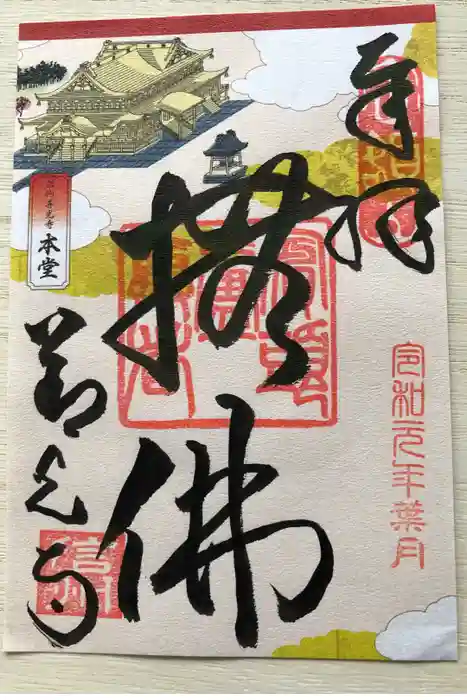 奉拝
令和元年葉月
撫佛
信州善光寺
本堂
善光寺